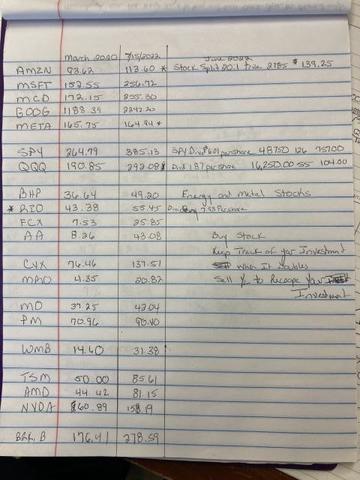 March 2020 7/15/2022 June 2022
AMZN 93.62 113.60 * Stock Split 20:1 Price 2785 $ 139.25
MSFT 152.55 256.72
MCD 172.15 255.30
GOOG 1183.39 2242.20
META 165.75 164.84 *
SPY 264.79 385.13 SPY Div per share 48750 126 75700
QQQ 190.85 292.08 * Div 1.87 per share 16,250.00 55 104.00
BHP 36.64 49.20 Energy and Metal Stocks
* RIO 43.38 55.45 7.93 Per share
FCX 7.53 25.85
AA 8.26 43.08 Buy Stock
Keep Track of your Investment
CVX 76.46 137.51 When It Doubles
MRO 4.35 20.82 Sell 1/2 to Recoupe Your
Investment
MO 37.25 42.04
PM 70.96 90.40
WMB 14.60 31.38
TSM 50.00 85.61
AMD 44.42 81.15
NVDA 60.89 158.19
BRK. B 176.41 278.59